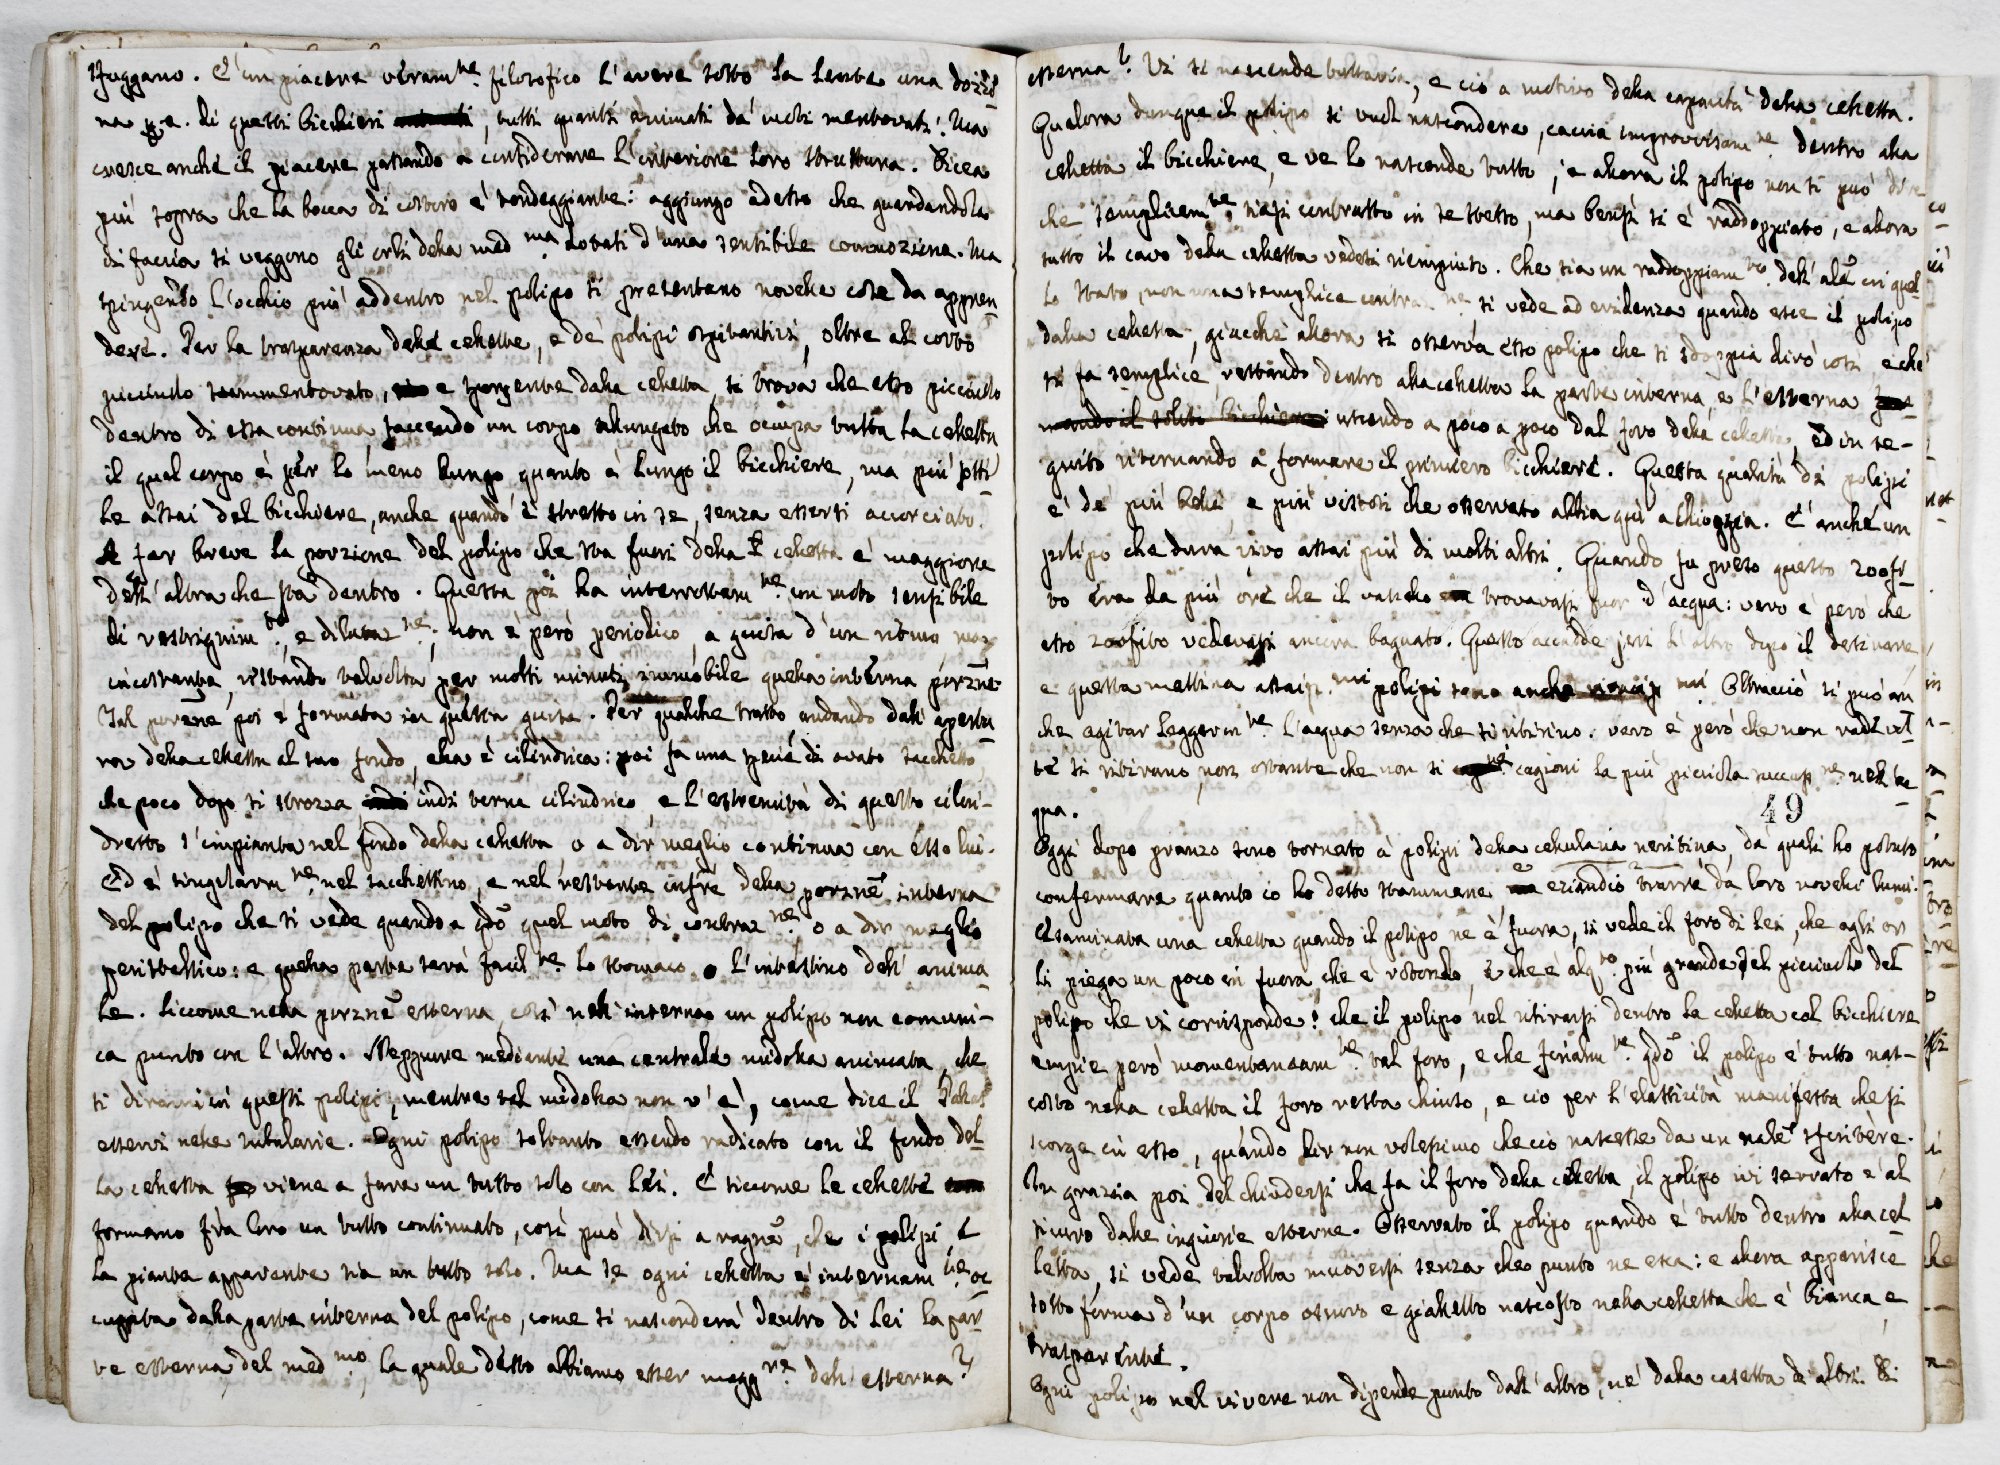 sfuggano. E' un piacere veram.te filosofico l'avere sotto la lente una dozzi-
na di questi bicchieri, tutti quanti animati da' moti mentovati. Ma
cresce anche il piacere passando a considerare l'interiore loro struttura. Dicea
più sopra che la bocca di costoro è tondeggiante: aggiungo adesso che guardandola
di faccia si veggono gli orli della med.ma dotati d'una sensibile commozione. Ma
spingendo l'occhio più addentro nel polipo si presentano novelle cose da appren-
dere. Per la trasparenza delle cellette, e de' polipi ospitantivi, oltre al corpo
picciuolo rammentovato, e sporgente dalla celletta, si trova che esso picciuolo
dentro di essa continua facendo un corpo allungato che occupa tutta la celletta
il qual corpo è per lo meno lungo quanto è lungo il bicchiere, ma più sotti-
le assai del bicchiere, anche quando è stretto in se, senza essersi accorciato.
A far breve la porzione del polipo che sta fuori della celletta è maggiore
dell'altra che sta dentro. Questa poi ha interrottam.te un moto sensibile
di restrignim.to, e dilataz.ne; non è però periodico, a guisa d'un ritmo, ma
incostante, restando talvolta per molti minuti immobile quella interna porzne
Tal porzne poi è formata in questa guisa. Per qualche tratto andando dall'apertu-
ra della celletta al suo fondo, ella è cilindrica: poi fa una specie di ovato sacchetto,
che poco dopo si strozza indi torna cilindrico, e l'estremità di questo cilin-
dretto s'impianta nel fondo della celletta o a dir meglio continua con esso lui.
Ed è singolarm.te nel sacchettino, e nel restante infre della porzne interna
del polipo che si vede quando a qdo quel moto di contraz.ne o a dir meglio
peristaltico: e quella parte sarà facil.te lo stomaco, o l'intestino dell'anima-
le. Siccome nella porzne esterna, così nell'interna un polipo non comuni-
ca punto con l'altro. Neppure mediante una centrale midolla animata, che
si dirami in questi polipi, mentre tal midolla non v'è, come dice il Pallas
esservi nelle tubularie. Ogni polipo soltanto essendo radicato con il fondo del-
la celletta viene a fare un tutto solo con lei. E siccome le cellette
formano fra loro un tutto continuato, così può dirsi a ragne, che i polipi, e
la pianta apparente sia un tutto solo. Ma se ogni celletta è internam.te oc-
cupata dalla parte interna del polipo, come si nasconderà dentro di lei la par-
te esterna del med.mo, la quale detto abbiamo esser magg.re dell'esterna?
esterna? Vi si nasconde tuttavia, e ciò a motivo della capacità della celletta.
Qualora dunque il polipo si vuol nascondere, caccia improvvisam.te dentro alla
celletta il bicchiere, e ve lo nasconde tutto; e allora il polipo non si può dire
che semplicem.te siasi contratto in se stesso, ma bensì si è raddoppiato, e allora
tutto il cavo della celletta vedesi riempiuto. Che sia un raddoppiam.to dell'ale in quel-
lo stato, non una semplice contraz.ne si vede ad evidenza quando esce il polipo
dalla celletta, giacchè allora si osserva esso polipo che si sdoppia dirò così, e che
si fa semplice restando dentro alla celletta la parte interna, e l'esterna
uscendo a poco a poco dal foro della celletta, ed in se-
guito ritornando a formare il primiero bicchiere. Questa qualità di polipi
è de' più belli, e più vistosi che osservato abbia quì a Chioggia. E' anche un
polipo che dura vivo assai più di molti altri. Quando fu preso questo zoofi-
to era da più ore che il vascello trovavasi fuor d'acqua: vero è però che
esso zoofito vedevasi ancora bagnato. Questo accadde jeri l'altro dopo il desinare,
e questa mattina assaiss.mi polipi sono anche vivaciss.mi Oltracciò si può an-
che agitar leggerm.te l'acqua senza che si ritirino. vero è però che non rade vol-
te si ritirano, non ostante che non si cagioni la più picciola succuss.ne nell'ac-
qua.
49
Oggi dopo pranzo sono tornato a' polipi della cellularia neritina, da' quali ho potuto
confermare quanto io ho detto stammane, e eziandio trarre da loro novelli lumi.
Esaminata una celletta quando il polipo ne è fuora, si vede il foro di lei, che agli or-
li piega un poco in fuora, che è rotondo, e che è alq.to più grande del picciuolo del
polipo che vi corrisponde: che il polipo nel ritirarsi dentro la celletta col bicchiere
empie però momentaneam.te tal foro, e che finalm.te qdo il polipo è tutto nas-
costo nella celletta il foro resta chiuso, e ciò per l'elasticità manifesta che si
scorge in esso, quando dir non volessimo che ciò nascesse da un nale sfintere.
In grazia poi del chiudersi che fa il foro della celletta, il polipo ivi serrato è al
sicuro dalle ingiurie esterne. Osservato il polipo quando è tutto dentro alla cel-
letta, si vede talvolta muoversi senza che punto ne esca: e allora apparisce
sotto forma d'un corpo oscuro e gialletto nascosto nella celletta che è bianca, e
trasparente.
Ogni polipo nel vivere non dipende punto dall'altro, nè dalla casetta de altri. Di